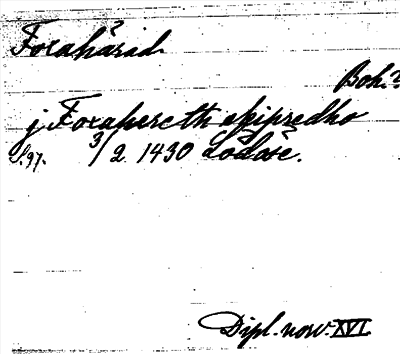 Foxahärad
Boh.?
j Foxahereth skipredho
S. 97. 3/2 1430 Lödose.
Dipl. norv. XVI